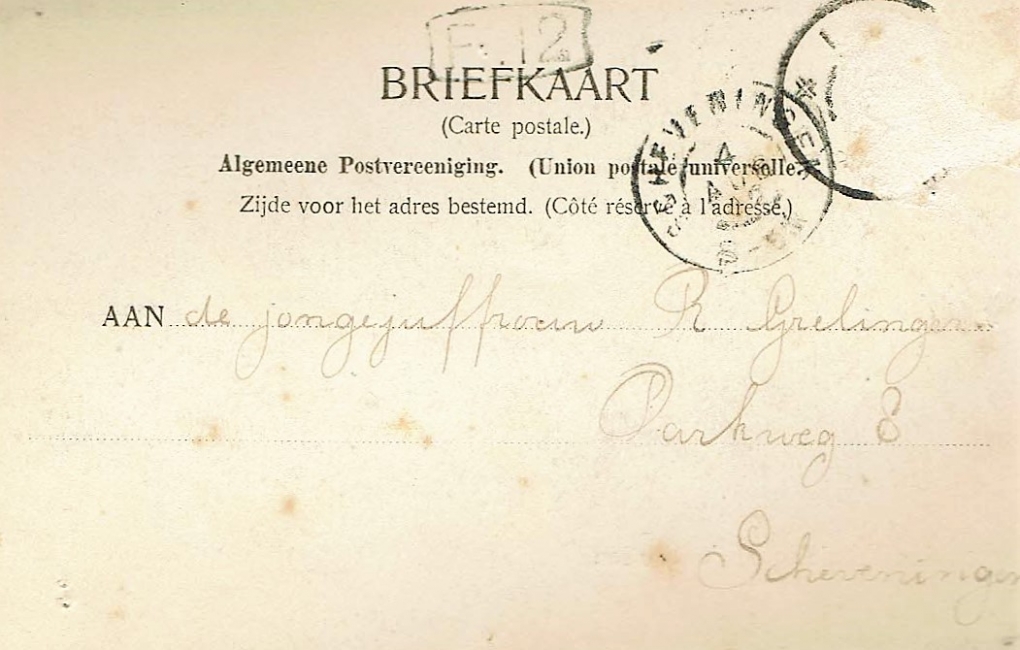 F. 12
BRIEFKAART
(Carte postale.)
SCHEVENINGEN
4 AUG
Algemeene Postvereeniging. (Union postale universelle.)
Zijde voor het adres bestemd. (Côté réservé à l'adresse.)
AAN de jongejuffrouw R Grelinger
Parkweg 8
Scheveningen